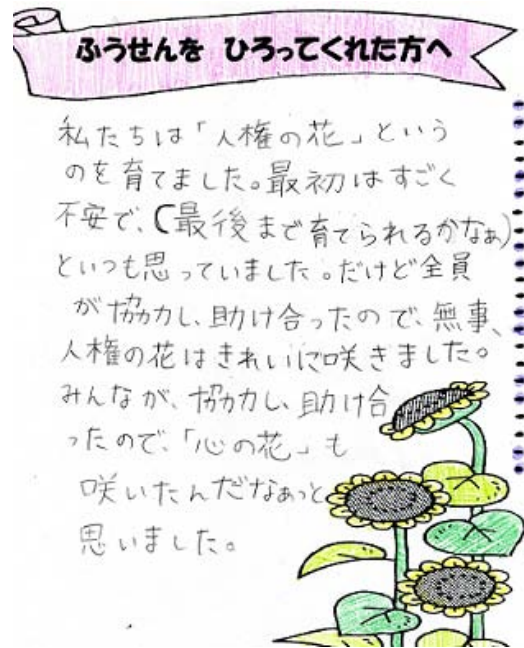 ふうせんを ひろってくれた方へ
私たちは「人権の花」という
のを育てました。最初はすごく
不安で、(最後まで育てられるかなぁ)
といつも思っていました。だけど全員
が協力し、助け合ったので、無事、
人権の花はきれいに咲きました。
みんなが、協力し、助け合
ったので、「心の花」も
咲いたんだなぁっと
思いました。